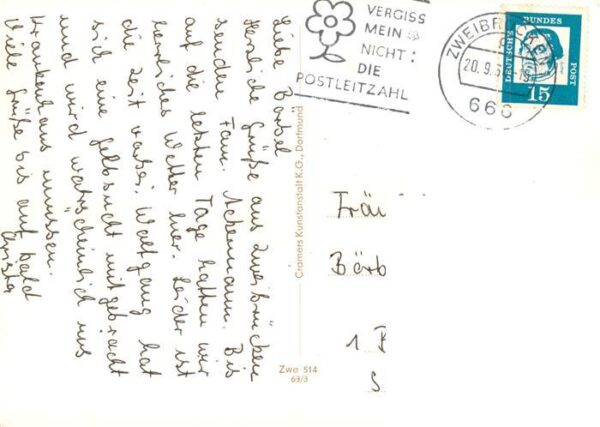 Liebe Bärbel
Herzliche Grüße aus Zweibrücken
senden Fam. Ackermann. Bis
auf die letzten Tage hatten wir
herrliches Wetter hier. Leider ist
die Zeit vorbei. Wolfgang hat
sich eine Gelbsucht mitgebracht
und wird wahrscheinlich ins
Krankenhaus müssen.
Viele Grüße bis auf bald
Christa
VERGISS
MEIN
NICHT:
DIE
POSTLEITZAHL
ZWEIBRÜCKEN
20.9.
666
DEUTSCHE BUNDES POST
15
Cramers Kunstanstalt K.G., Dortmund
Zwe 514
63/3
Fräu
Bärb
1